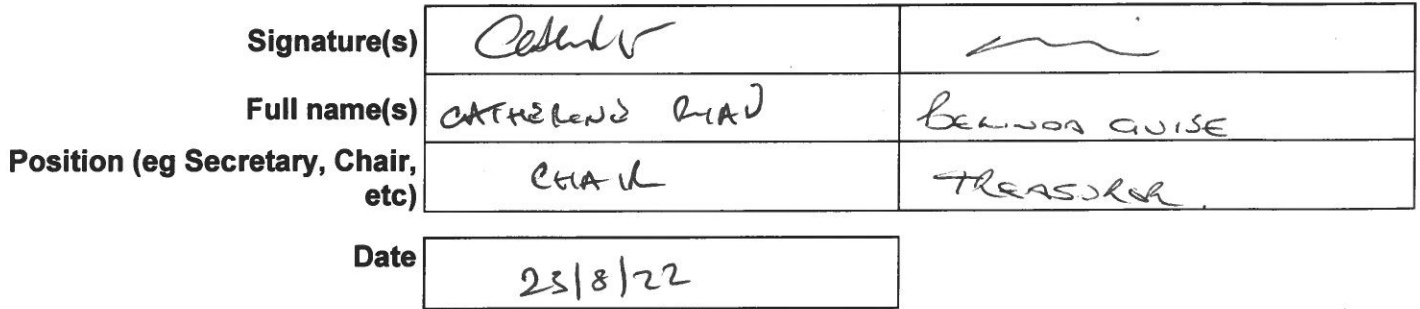 Signature(s)
Full name(s) CATHERENE RYAN BELINDA GUISE
Position (eg Secretary, Chair, CHAIR TREASURER.
etc)
Date 23/8/22